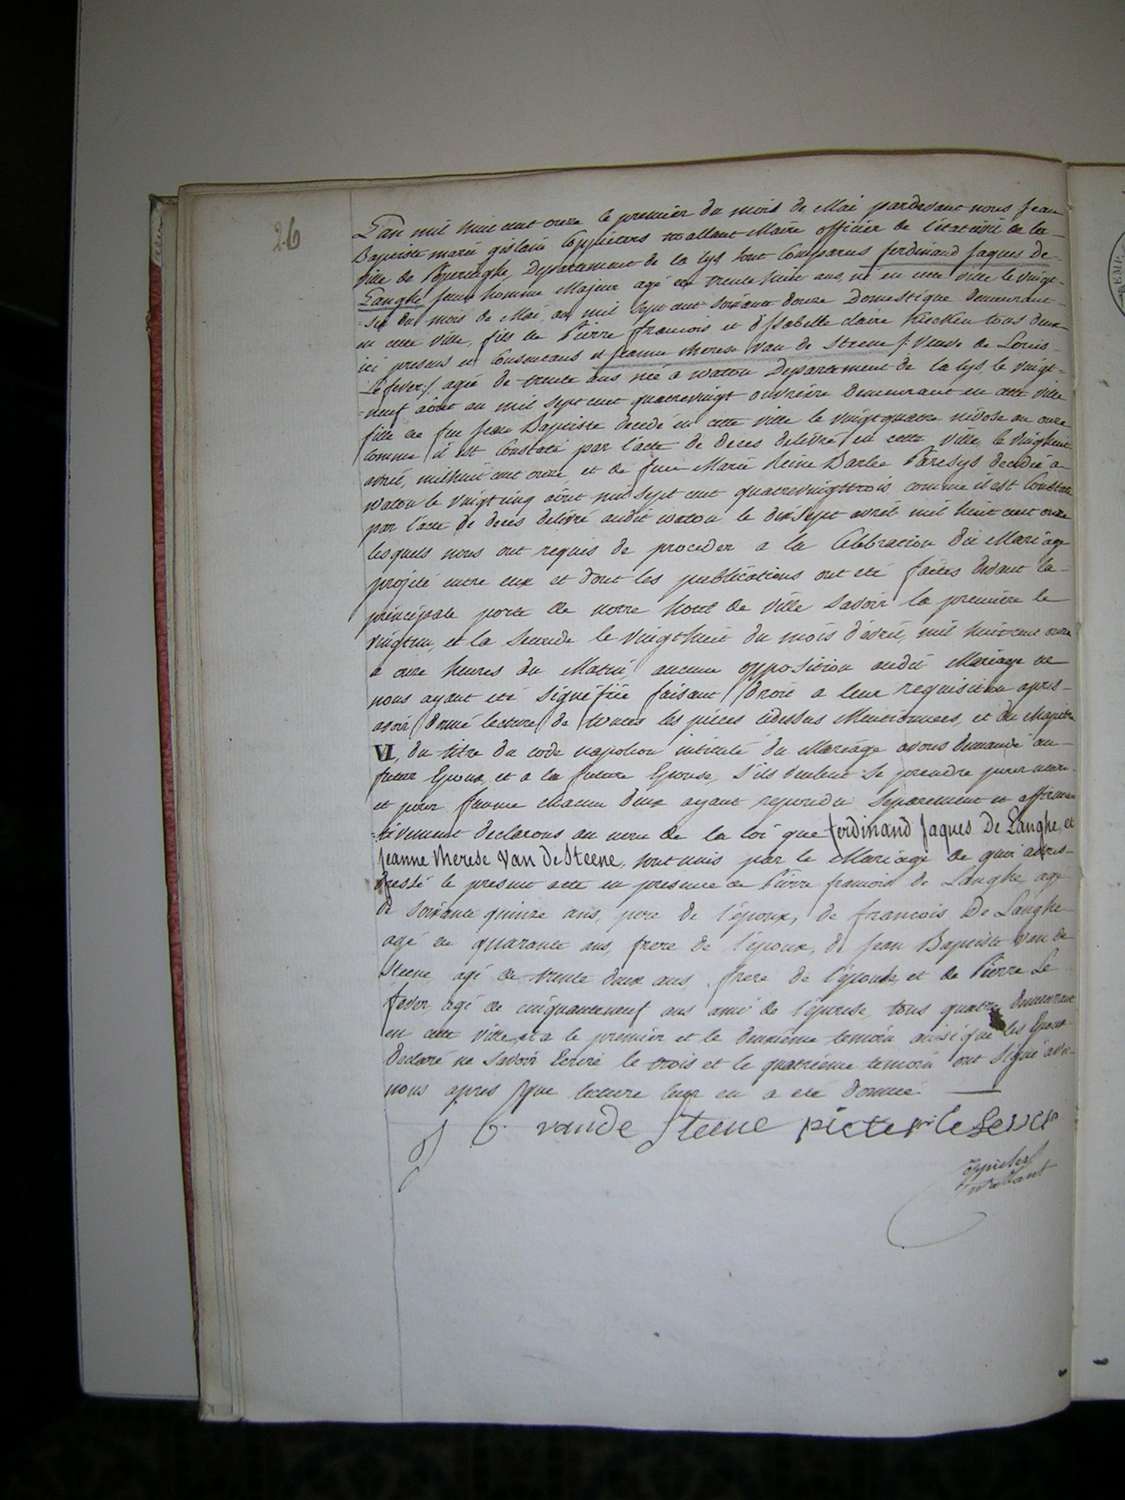 26
L'an mil huit cent onze le premier du mois de Mai pardevant nous Jean
Baptiste marie gislain Coppieters wallant Maire officier de l'état civil de la
ville de Poperinghe, Departement de la Lys sont Comparus ferdinand Jaques de
Langhe jeune homme Majeur agé de trente huit ans, né en cette ville le vingt-
six du mois de Mai, an mil sept cent soixante douze Domestique demeurant
en cette ville, fils de Pierre francois et d'Isabelle claire tous deux
ici presens et Consentans et jeanne therese van de Steene /: Veuve de Louis
Lefever :/ agée de trente ans née à watou Departement de la Lys le vingt-
neuf août an mil sept cent quatrevingt ouvrière demeurant en cette ville
fille de feu Jean Baptiste decedé en cette ville le vingtquatre nivose an onze
comme il est Constaté par l'acte de deces delivré en cette ville le vingthuit
avril, mil huit cent onze, et de feue Marie Reine Barbe Paresys decedée à
watou le vingtcinq août mil sept cent quatrevingttrois comme il est Constaté
par l'acte de deces delivré audit watou le dix Sept avril mil huit cent onze
lesquels nous ont requis de proceder a la Celebration du Mariage
projeté entre eux et dont les publications ont été faites devant la
principale porte de notre hotel de ville Savoir la première le
vingtun, et la Seconde le vingthuit du mois d'avril, mil huit cent onze
à onze heures du Matin, aucune opposition audit Mariage ne
nous ayant été Signifiée faisant droit a leur requisition apres
avoir donné lecture de toutes les pièces cidessus Mentionnées, et du chapitre
VI, du titre du code napoleon intitulé du Mariage avons demandé au
futur Epoux, et a la future Epouse, S'ils veulent Se prendre pour mari
et pour femme chacun deux ayant repondu Separement et affirma
tivement declarons au nom de la loi que ferdinand Jaques De Langhe, et
Jeanne therese Van de Steene, sont unis par le Mariage de quoi avons
dressé le present acte en presence de Pierre francois de Langhe agé
de soixante quinze ans, pere de l'époux, de francois De Langhe
agé de quarante ans, frere de l'époux, de Jean Baptiste van de
Steene agé de trente deux ans frere de l'épouse, et de Pierre Le
fever agé de cinquanteneuf ans ami de l'épouse, tous quatre demeurant
en cette ville, et a le premier et le deuxième temoin ainsi que les Epoux
declaré ne Savoir Ecrire le trois et le quatrième temoin ont Signé avec
nous apres que lecture leur en a été donnée
J B vande Steene pieter lefever
Coppieters
wallant